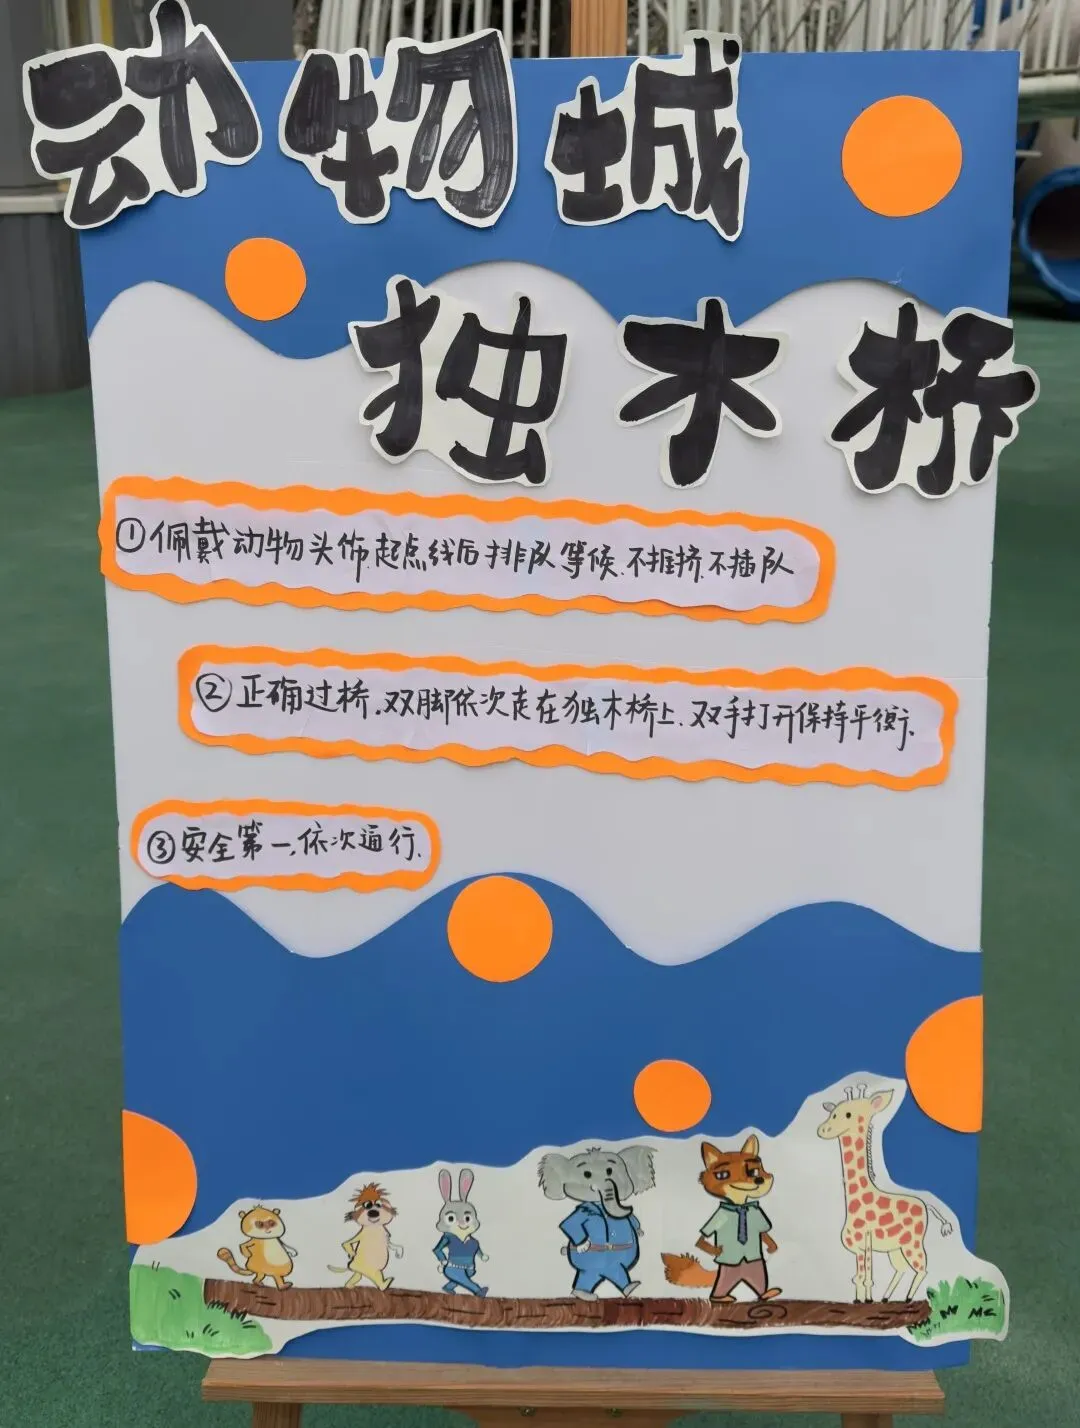 动物城
独木桥
①佩戴动物头饰.起点线后排队等候.不推挤.不插队
②正确过桥.双脚依次走在独木桥上.双手打开保持平衡.
③安全第一.依次通行.